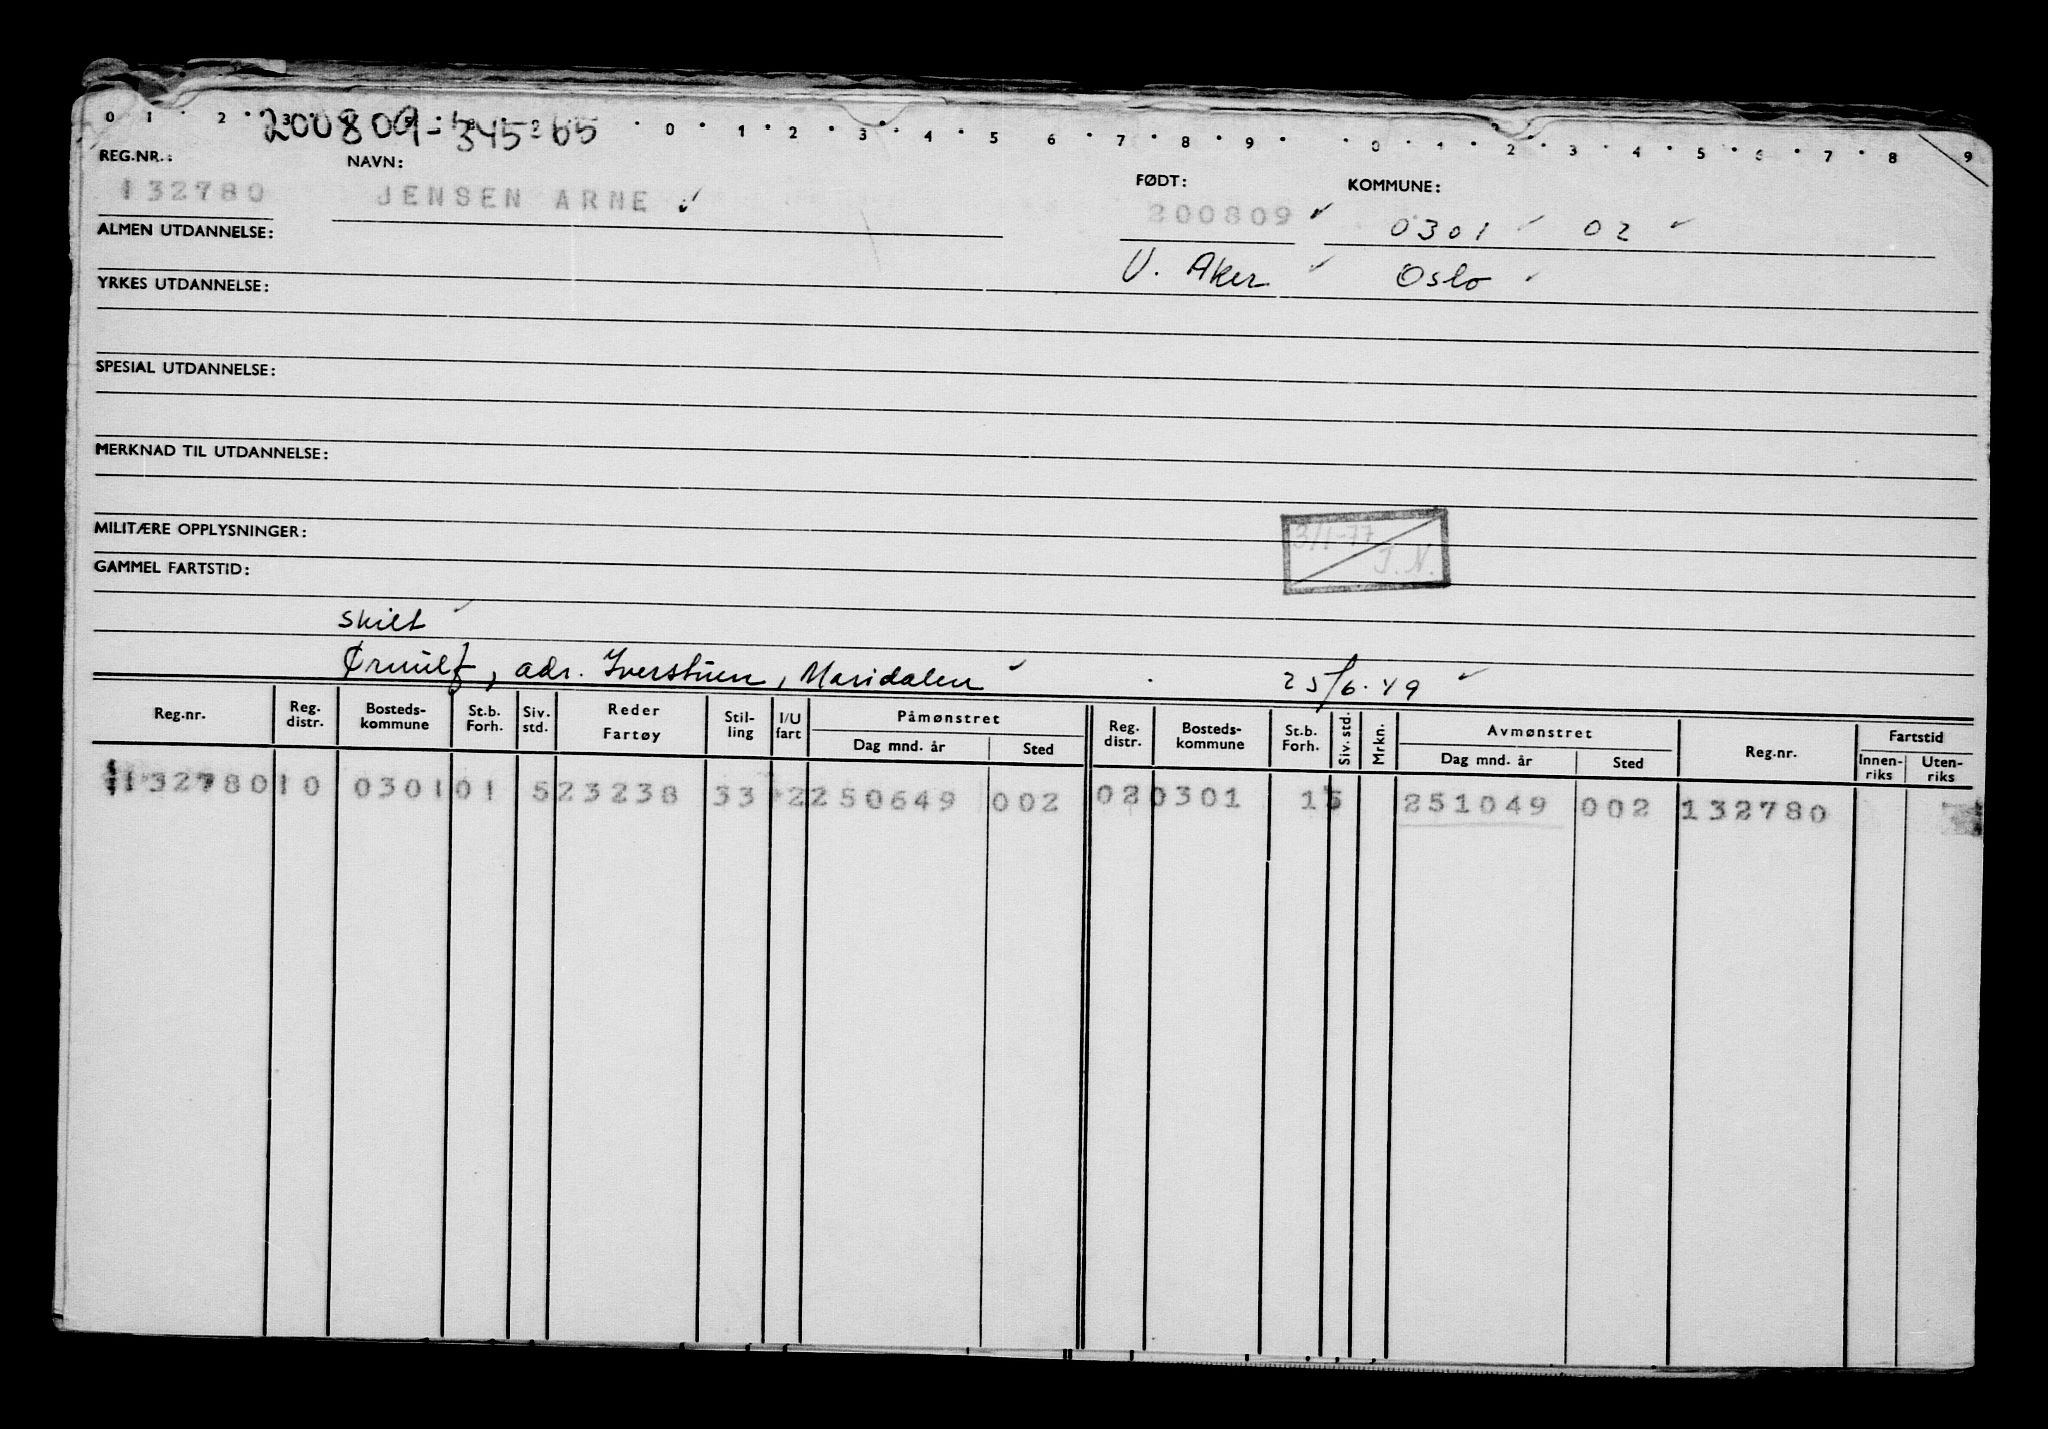 0 1 2 3 5 0 1 2 3 4 5 6 7 8 9 0 1 2 3 4 5 6 7 8 9
200809-345-65
REG.NR.: NAVN: FØDT: KOMMUNE:
132780 JENSEN ARNE 200809 0301 02
ALMEN UTDANNELSE:
V. Aker Oslo
YRKES UTDANNELSE:
SPESIAL UTDANNELSE:
MERKNAD TIL UTDANNELSE:
MILITÆRE OPPLYSNINGER:
3/1-77
J.N.
GAMMEL FARTSTID:
skilt
Ørnulf, adr. Iverstuen, Maridalen 25/6.49
Reg.nr. Reg. distr. Bosteds-kommune St.b. Forh. Siv. std. Reder Fartøy Stil-ling I/U fart Påmønstret Dag mnd. år Sted Reg. distr. Bosteds-kommune St.b. Forh. Siv. std. Mrkn. Avmønstret Dag mnd. år Sted Reg.nr. Fartstid Innen-riks Uten-riks
132780 10 0301 01 5 23238 33 2 250649 002 02 0301 1 5 251049 002 132780